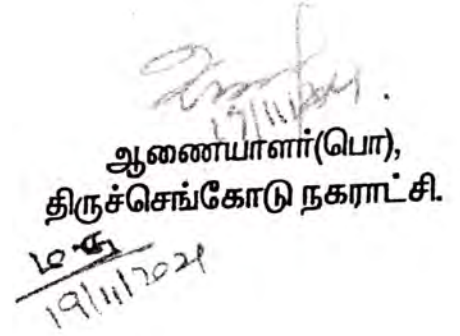 19/11/2021.
ஆணையாளர்(பொ),
திருச்செங்கோடு நகராட்சி.
19/11/2021